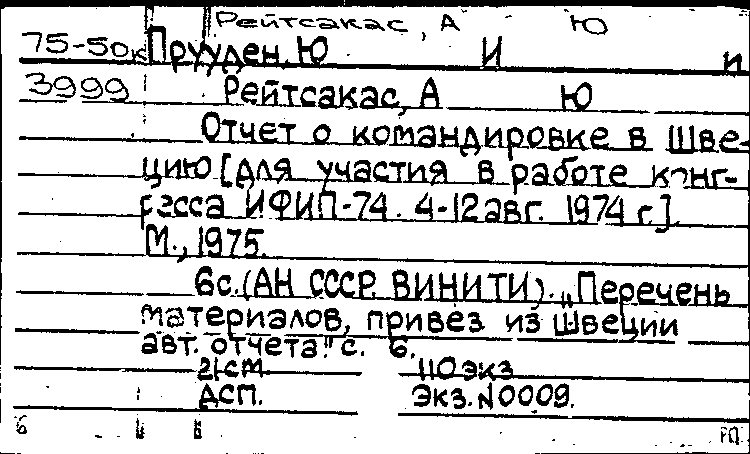 Рейтсакас, А Ю
75-50к Прууден, Ю И и
3999 Рейтсакас, А Ю
Отчет о командировке в Шве-
цию [для участия в работе конг-
ресса ИФИП-74. 4-12 авг. 1974 г.].
М., 1975.
6с. (АН СССР. ВИНИТИ). „Перечень
материалов, привез из Швеции
авт. отчета." с. 6.
21см. 110 экз
ДСП. Экз. N0009.
6 РП